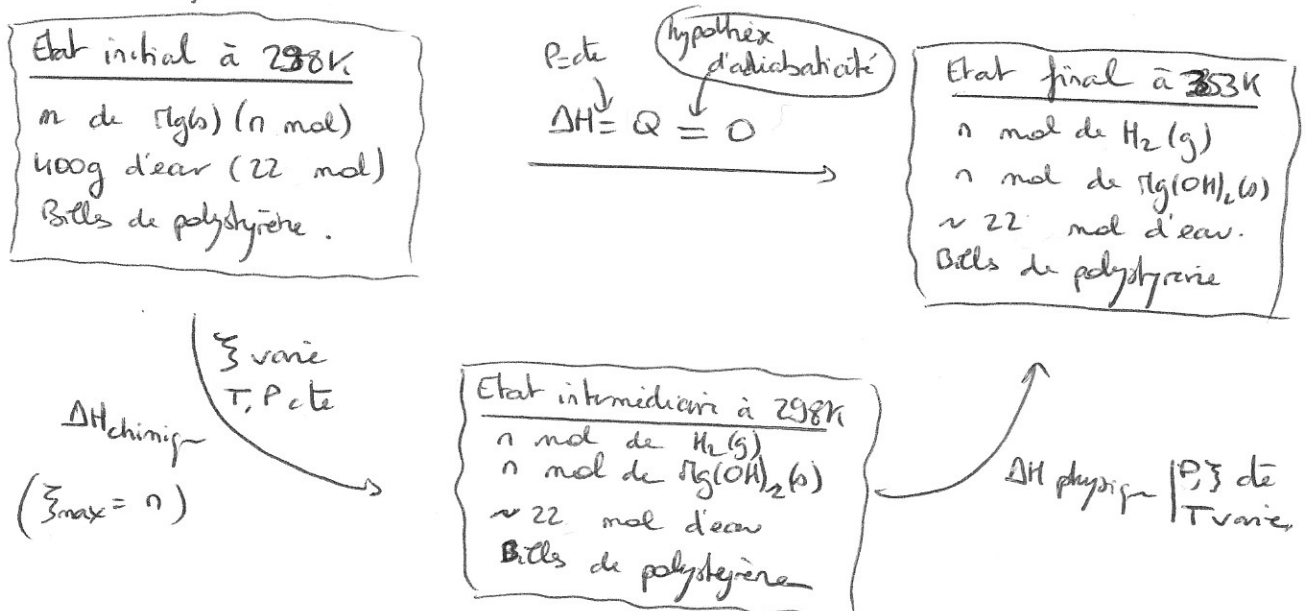 Etat initial à 298K
m de Mg(s) (n mol)
400g d'eau (22 mol)
Billes de polystyrène.
P=cte
hypothèse
d'adiabaticité
ΔH = Q = 0
Etat final à 353K
n mol de H₂(g)
n mol de Mg(OH)₂(s)
~ 22 mol d'eau.
Billes de polystyrène
ξ varie
T, P cte
ΔHchimiq
(ξmax = n)
Etat intermédiaire à 298K
n mol de H₂(g)
n mol de Mg(OH)₂(s)
~ 22 mol d'eau
Billes de polystyrène
ΔH physiq | P, ξ cte
T varie